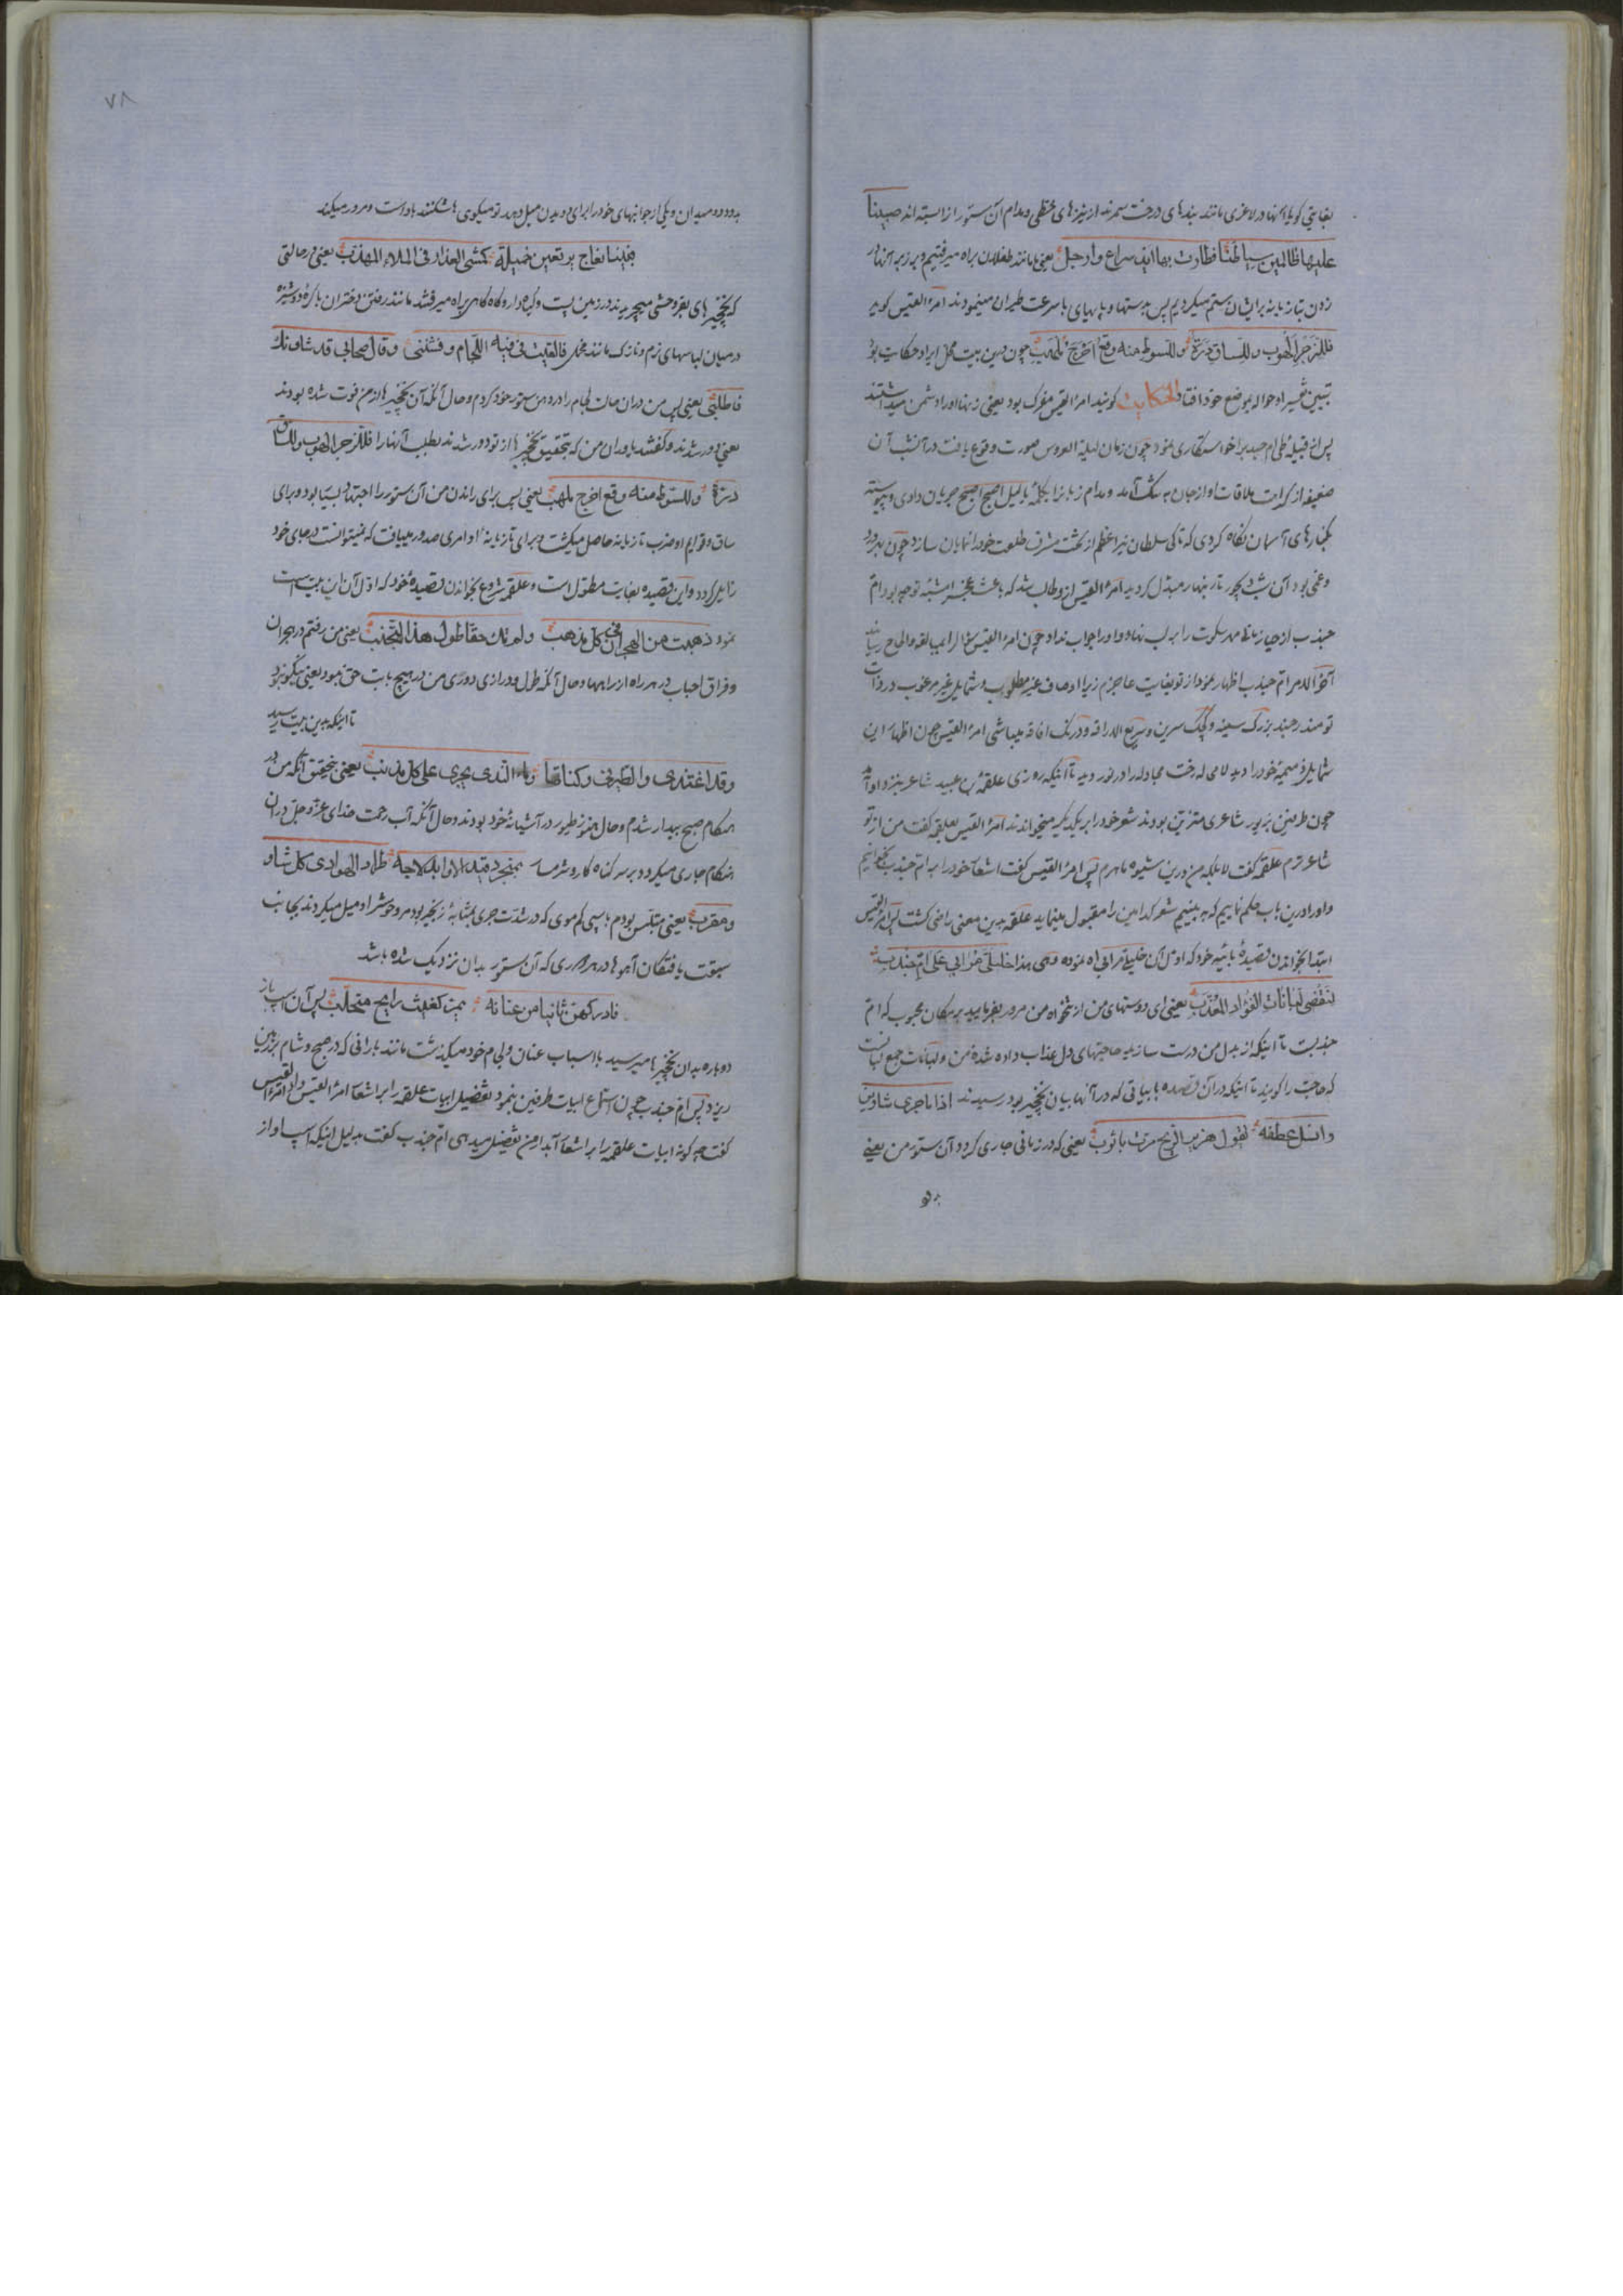 بغایتی گویا آنها در لاغری مانند بندهای درخت سمرند از نیزه‌های خطی و مدام آن ستور را از ابسته اند صببنا
علیها ظالمین سیاطنا فطارت بها اید سراع وارجل یعنی ما مانند ظالمان براه میرفتیم و بر زبر آنها در
زدن تازیانه برایشان ستم میکردیم پس بدستها و پاهای با سرعت طیران مینمودند امرء القیس گوید
فللزجر الهوب وللساق درة وللسوط منه وقع اخرج مهذب چون درین بیت محل ایراد حکایت بود
تبیین تفسیر او حواله بموضع خود افتاد الحکایت گویند امرء القیس مفرک بود یعنی زنها او را دشمن میداشتند
پس از قبیله طی ام جندب را خواستگاری نمود چون زمان لیلة العروس صورت وقوع یافت در آن شب آن
ضعیفه از کراهت ملاقات او از جان به تنگ آمد و مدام زبانرا بکلمه یا لیل اصبح اصبح جریان دادی و پیوسته
بکنارهای آسمان نگاه کردی که تا کی سلطان نیر اعظم از تخت مشرق طلعت خود را نمایان سازد چون بدرد
و غمی بود آن شب دیجور تار بنهار مبدل گردید امرء القیس ازو طالب شد که باعث توجه بود ام
جندب از حیا زمانی مهر سکوت را بر لب نهاد و او را جواب نداد چون امرء القیس سؤال را بمبالغه و الحاح رسانید
آخر الامر ام جندب اظهار نمود از تو بغایت عاجزم زیرا اوصاف غیر مطلوب و شمایل غیر مرغوب در ذات
تو مندرجند بزرگ سینه و کوچک سرین و سریع الاراقه و درنگ افاقه میباشی امرء القیس چون اظهار این
شمایل ذمیمه خود را دید لامحاله رخت مجادله را در نوردید تا اینکه روزی علقمة بن عبید شاعر بنزد او آمد
چون طرفین بزیور شاعری متزین بودند شعر خود را بر یکدیگر میخواندند امرء القیس بعلقمه گفت من از تو
شاعرترم علقمه گفت لا بلکه من درین شیوه ماهرم پس امرء القیس گفت اشعار خود را بر ام جندب بخوانیم
و او را درین باب حکم نماییم که به بینیم شعر کدامین را مقبول مینماید علقمه بدین معنی راضی گشت پس امرء القیس
ابتدا بخواندن قصیدۀ بائیه خود که اول آن خلیلی مرا بی اه نموده وهی هذا خلیلی مرا بی علی ام جندب
لنقضی لبانات الفؤاد المعذب یعنی ای دوستهای من از همراه من مرور بفرمایید بر مکان محبوب که ام
جندبست تا اینکه از بدل من درست سازید حاجتهای دل عذاب داده شدۀ من و لبانات جمع لبانست
که حاجت را گویند تا اینکه در آن قصیده بابیاتی که در آنها بیان نخجیر بود رسیدند اذا ما جری شأوین
وابتل عطفه تقول هزیز الریح مرت باثوب یعنی که در زمانی جاری گردد آن ستور من یعنی
بدو
۷۸
بدو دو میدان و یکی از جوانبهای خود را برای دویدن میل دهد تو میگوی باشکنند باد است و مرور میکند
فبینا نعاج یرتعین خمیلة کمشی العذاری فی الملاء المهذب یعنی در حالتی
که نخجیرهای بقر وحشی میچریدند در زمین پست و گیاه‌دار و گاه گاهی براه میرفتند مانند رفتن دختران باکره دوشیزه
در میان لباسهای نرم و نازک مانند مخمل فالقیت فی فیه اللجام وفتننی وقال صحابی قد شاونک
فاطلب یعنی پس من دران حالت لجام را در دهن ستور خود کردم و حال آنکه آن نخجیرها از من فوت شده بودند
یعنی دور شدند و گفتند یاوران من که بتحقیق نخجیرها از تو دور شدند بطلب آنها را فللزجر الهوب وللساق
درة وللسوط منه وقع اخرج مهذب یعنی پس برای راندن من آن ستور را اجتهاد بسیار بود و برای
ساق و قوایم او ضرب تازیانه حاصل میگشت و برای تازیانۀ او امری صدور مییافت که نمیتوانست در جای خود
زایل گردد و این قصیده بغایت مطول است و علقمه شروع بخواندن قصیدۀ خود که اول آن این بیت است
نمود ذهبت من الهجران فی کل مذهب ولم تک حقا طول هذا التجنب یعنی من رفتم در هجران
و فراق احباب در هر راه از راهها و حال آنکه طول و درازی دوری من در هیچ بابت حق نبود یعنی نیکو نبود
تا اینکه بدین بیت رسید
وقد اغتدی والطیر فی وکناتها وماء الندی یجری علی کل مذنب یعنی بتحقیق آنکه من در
هنگام صبح بیدار شدم و حال هنوز طیور در آشیانۀ خود بودند و حال آنکه آب رحمت خدای عز و جل در آن
هنگام جاری میگردد بر سر گناه کار و شرمسار بمنجرد قید الاوابد لاحه طراد الهوادی کل شاو
ومغرب یعنی متلبس بودم با اسپی کم موی که در شدت جری بمثابۀ زنجیر بود مر وحوش را و میل میکردند بجانب
سبقت یافتگان آهوها در هر دوری که آن ستور بدان نزدیک شده باشد
فادرکهن ثانیا من عنانه یمر کغیث رایح متحلب پس آن اسپ باز
دوباره بدان نخجیرها میرسید با اسباب عنان و لجام خود میگذشت مانند بارانی که در صبح و شام بر زمین
ریزد پس ام جندب چون استماع ابیات طرفین بنمود تفضیل ابیات علقمه را بر اشعار امرء القیس داد امرء القیس
گفت چه گونه ابیات علقمه را بر اشعار آبدار من تفضیل میدهی ام جندب گفت بدلیل اینکه اسپ او از